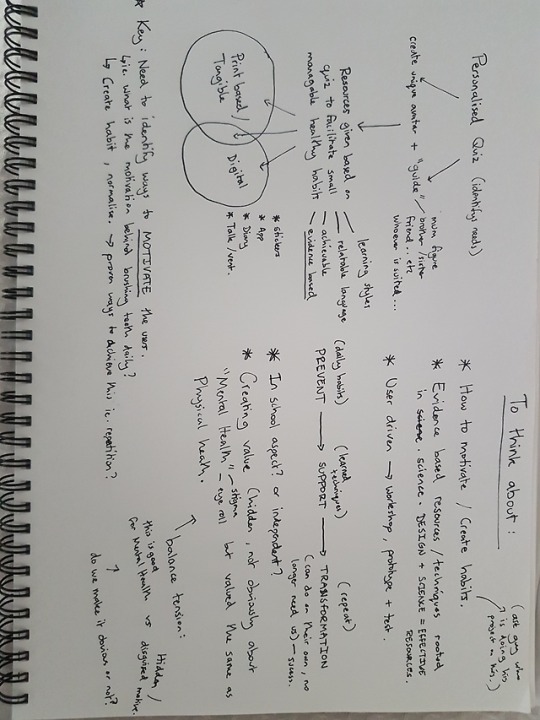 Personalised Quiz (identify needs)
create unique avatar + "guide"
mum figure
brother/sister
friend.. etc
whoever is suited...
Resources given based on
quiz to facilitate small
managable healthy habits
learning styles
relatable language
achievable
evidence based
Print based/
Tangible
Digital
* Stickers
* App
* Diary
* Talk/vent.
* Key: Need to identify ways to MOTIVATE the user.
↳ i.e. what is the motivation behind brushing teeth daily?
↳ Create habit, normalise. → proven ways to achieve this i.e. repetition?
To think about:
* How to motivate / Create habits.
(ask guy who
is doing his
project on this.)
* Evidence based resources / techniques rooted
in science. DESIGN + SCIENCE = EFFECTIVE
RESOURCES.
* User driven → workshop, prototype + test.
(daily habits) (learned techniques) (repeat)
PREVENT → SUPPORT → TRANSFORMATION
(can do on their own, no
longer need us) - success.
* In school aspect? or independent?
* Creating value (hidden, not obviously about
"Mental Health" - stigma - eye roll but valued the same as
Physical health.
balance tension:
Hidden /
this is good for Mental Health vs disguised motive.
do we make it obvious or not?